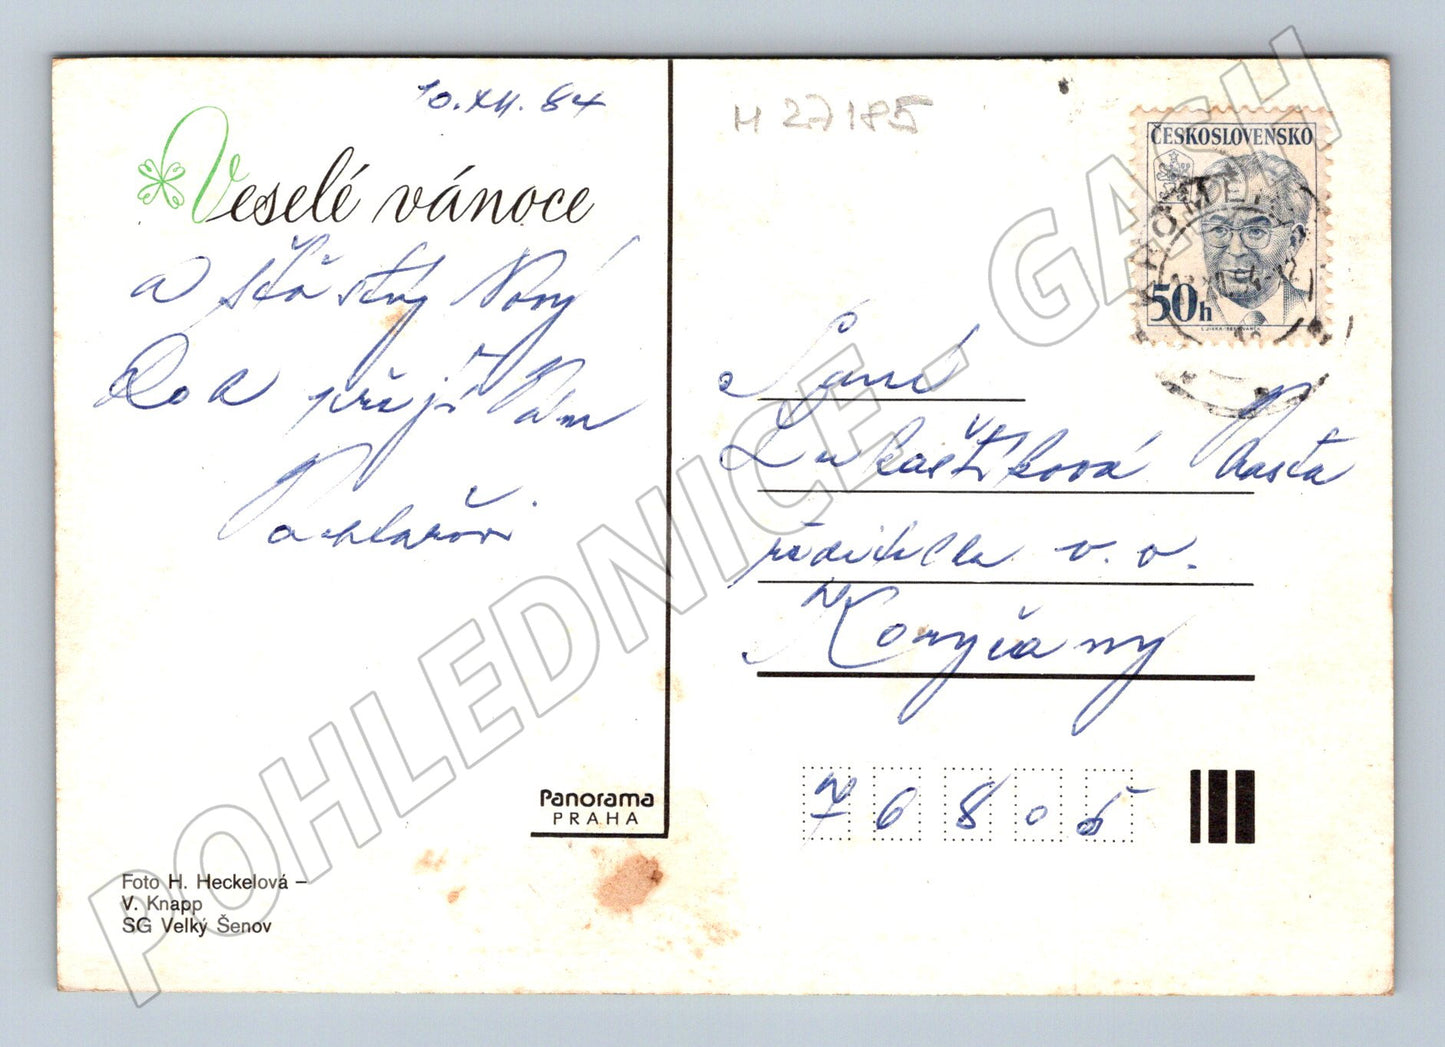 10.XII.84
Veselé vánoce
a šťastný Nový
Rok přejí Vám
H 27185
ČESKOSLOVENSKO
50h
Paní
Lukaštíková Vlasta
ředitelka v. v.
Koryčany
76805
Panorama
PRAHA
Foto H. Heckelová –
V. Knapp
SG Velký Šenov
POHLEDNICE - GASH